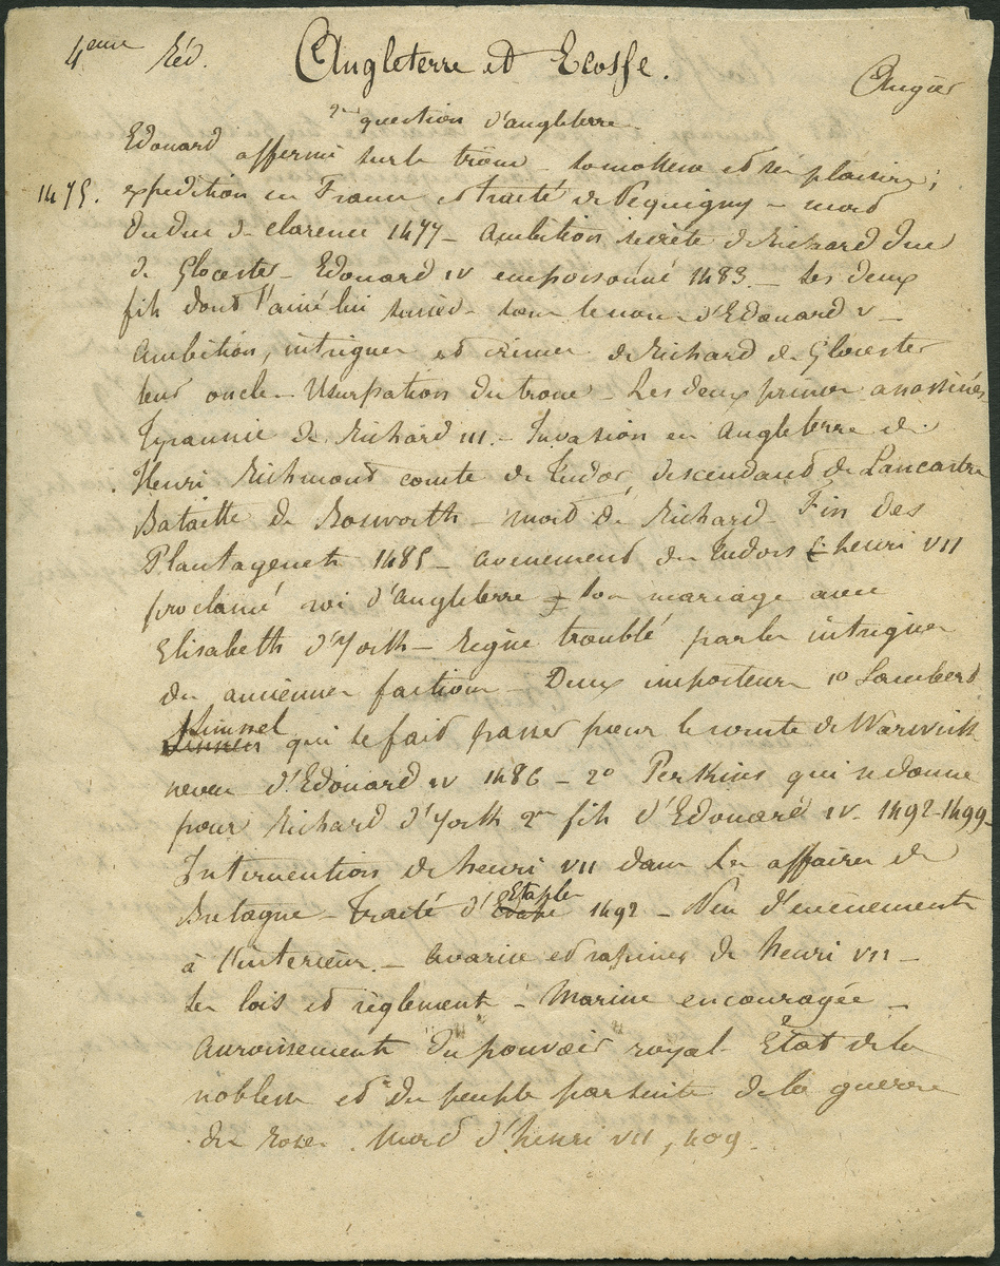 4eme Réd.
Angleterre et Ecosse.
Augier
2me question d'angleterre.
Edouard affermi sur le trône – sa mollesse et ses plaisirs ;
1475. expedition en France et traité de Pequigny – mort
du duc de clarence 1477 – Ambition secrète de Richard duc
de Glocester – Edouard IV empoisonné 1483. – Ses deux
fils dont l'ainé lui succède sous le nom d'Edouard V –
Ambition, intrigues et crimes de Richard de Glocester
leur oncle – Usurpation du trone – Les deux princes assassinés
Tyrannie de Richard III. – Invasion en Angleterre de
Henri Richmond comte de Tudor, descendant de Lancastre
Bataille de Bosworth – mort de Richard – Fin des
Plantagenets 1485 – avenement des Tudors henri VII
proclamé roi d'Angleterre son mariage avec
Elisabeth d'York – Règne troublé par les intrigues
des anciennes factions – Deux imposteurs 1o Lambert
Simnel qui se fait passer pour le comte de Warwick
neveu d'Edouard IV 1486 – 2o Perkins qui se donne
pour Richard d'York 2me fils d'Edouard IV. 1492-1499–
Intervention de henri VII dans les affaires de
Bretagne – Traité d'Etaples 1492 – Peu d'evènements
à l'interieur. – Avarice et rapines de henri VII –
Ses lois et règlements – Marine encouragée –
Accroissements du pouvoir royal – Etat de la
noblesse et du peuple par suite de la guerre
des Roses. Mort d'henri VII, 1509.